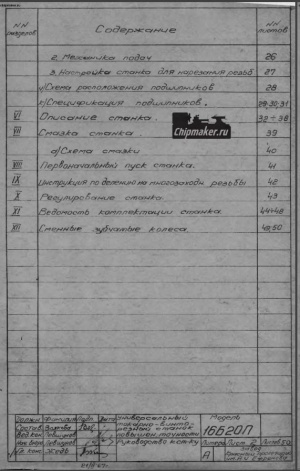 NN разделов
Содержание
NN листов
2. Механика подач 26
3. Настройка станка для нарезания резьб 27
и) Схема расположения подшипников 28
к) Спецификация подшипников. 29,30,31
VI Описание станка. 32÷38
VII Смазка станка 39
а) Схема смазки 40
VIII Первоначальный пуск станка. 41
IX Инструкция по делению на многозаходн. резьбы 42
X Регулирование станка 43
XI Ведомость комплектации станка 44÷48
XII Сменные зубчатые колеса 49,50
Chipmaker.ru
Универсальный токарно-винторезный станок повышен. точности
Руководство к станку
Модель
16Б20П
Литера Лист 2 Листов 50
А